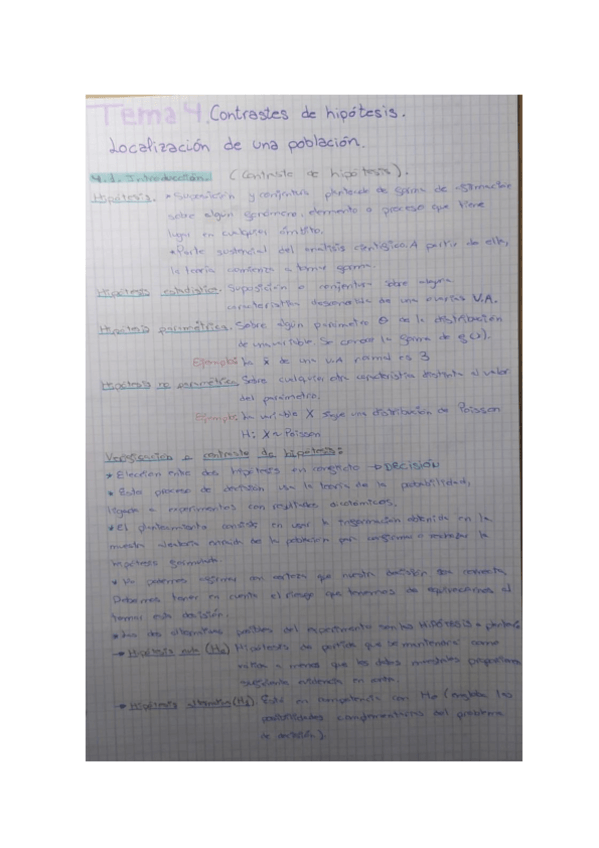 Tema 4. Contrastes de hipótesis.
Localización de una población.
4.1. Introducción. (Contraste de hipótesis).
Hipótesis. • Suposición y conjetura planteada de forma de afirmación
sobre algún fenómeno, elemento o proceso que tiene
lugar en cualquier ámbito.
• Parte sustancial del análisis científico. A partir de ella,
la teoría comienza a tomar forma.
Hipótesis estadística. Suposición o conjetura sobre alguna
característica desconocida de una o varias V.A.
Hipótesis paramétrica. Sobre algún parámetro θ de la distribución
de una variable. Se conoce la forma de
Ejemplo: La x̄ de una V.A normal es 3
Hipótesis no paramétrica. Sobre cualquier otra característica distinta al valor
del parámetro.
Ejemplo: La variable X sigue una distribución de Poisson
H: X ~ Poisson
Verificación o contraste de hipótesis:
• Elección entre dos hipótesis en conflicto → DECISIÓN
• Este proceso de decisión usa la teoría de la probabilidad,
ligada a experimentos con resultados
• El planteamiento consiste en usar la información obtenida en la
muestra aleatoria extraída de la población para confirmar o rechazar la
hipótesis formulada.
• No podemos afirmar con certeza que nuestra decisión sea correcta.
Debemos tener en cuenta el riesgo que tenemos de equivocarnos al
tomar esta decisión.
• Las dos alternativas posibles del experimento son las HIPÓTESIS a plantear
→ Hipótesis nula (H₀) Hipótesis de partida que se mantendrá como
a menos que los datos muestrales proporcionen
suficiente evidencia en contra.
→ Hipótesis alternativa (H₁) Está en competencia con H₀ (engloba las
posibilidades complementarias del problema
de decisión).